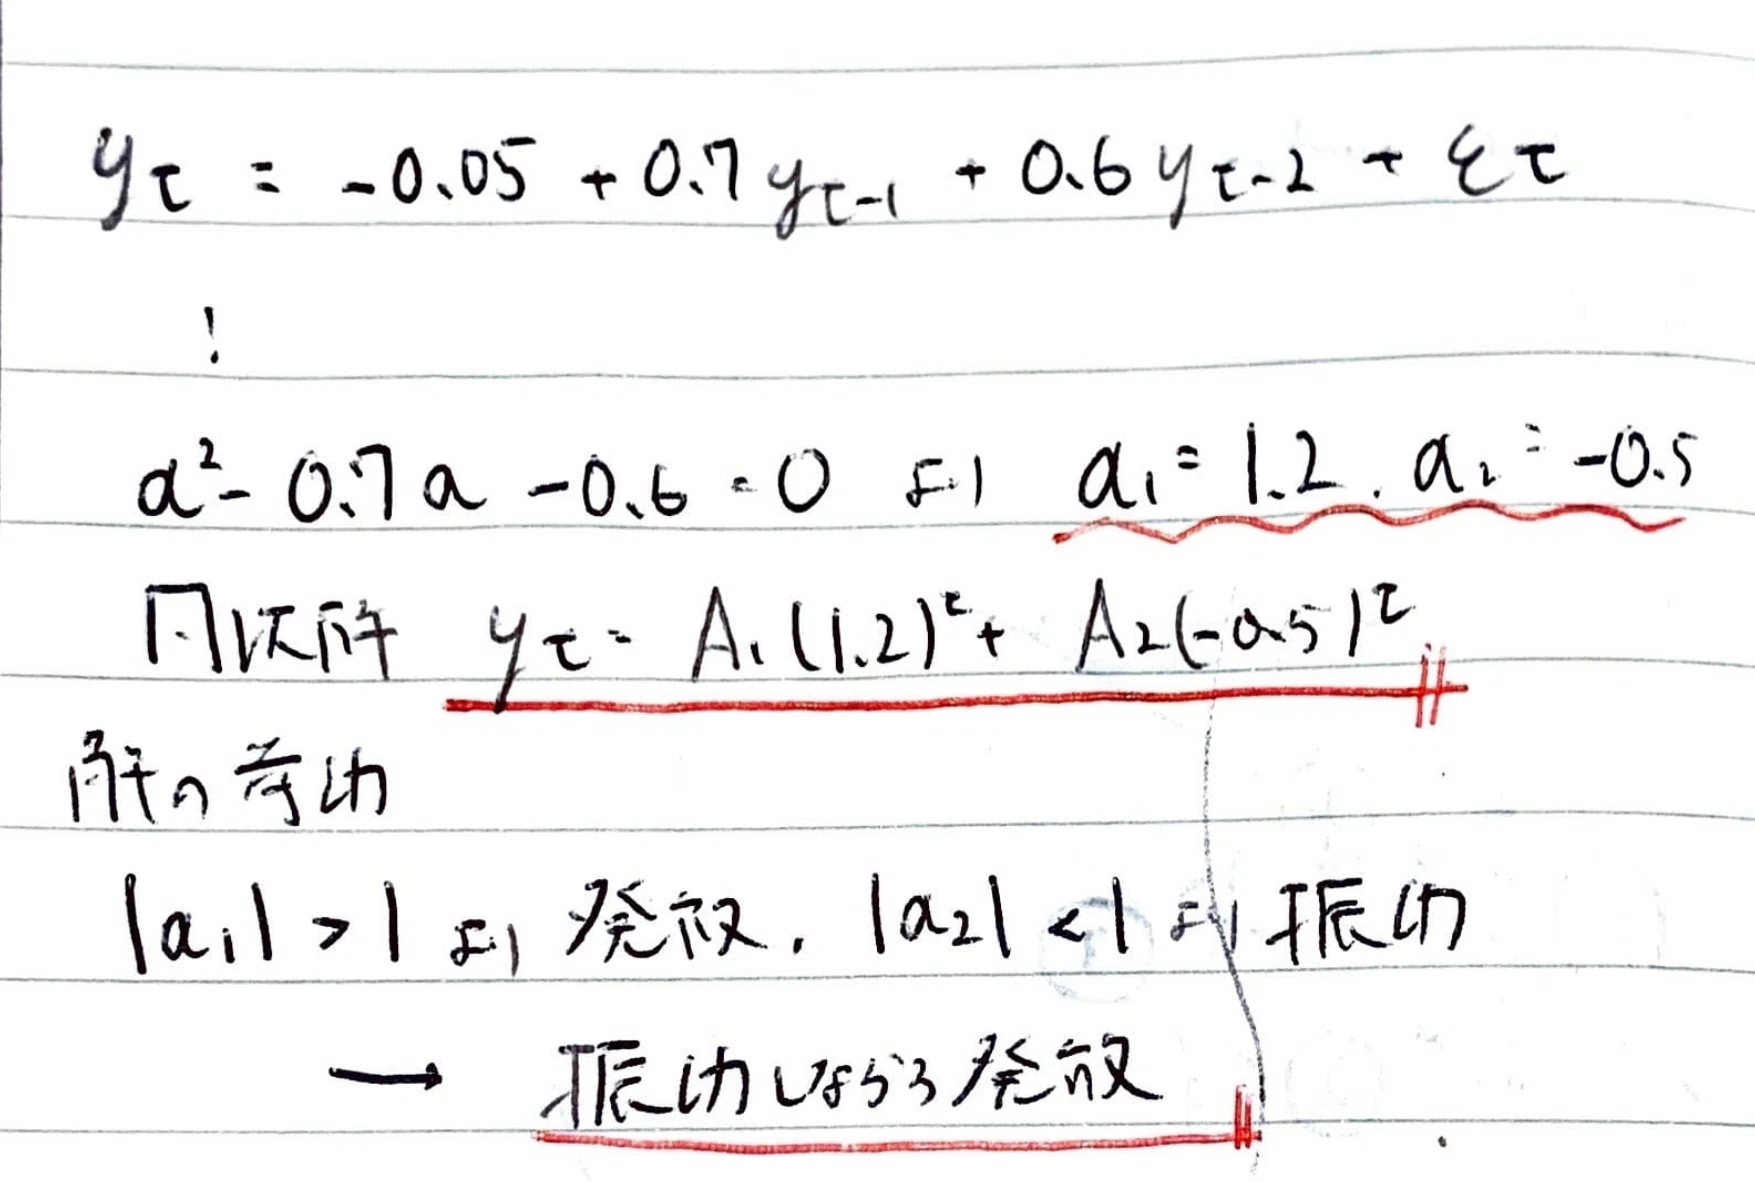 yt = -0.05 + 0.7yt-1 + 0.6yt-2 + εt
!
a²- 0.7a - 0.6 = 0 より a1 = 1.2. a2 = -0.5
同次解 yt = A1(1.2)^t + A2(-0.5)^t
解の挙動
|a1| > 1 より 発散. |a2| < 1 より 振動
→ 振動しながら発散